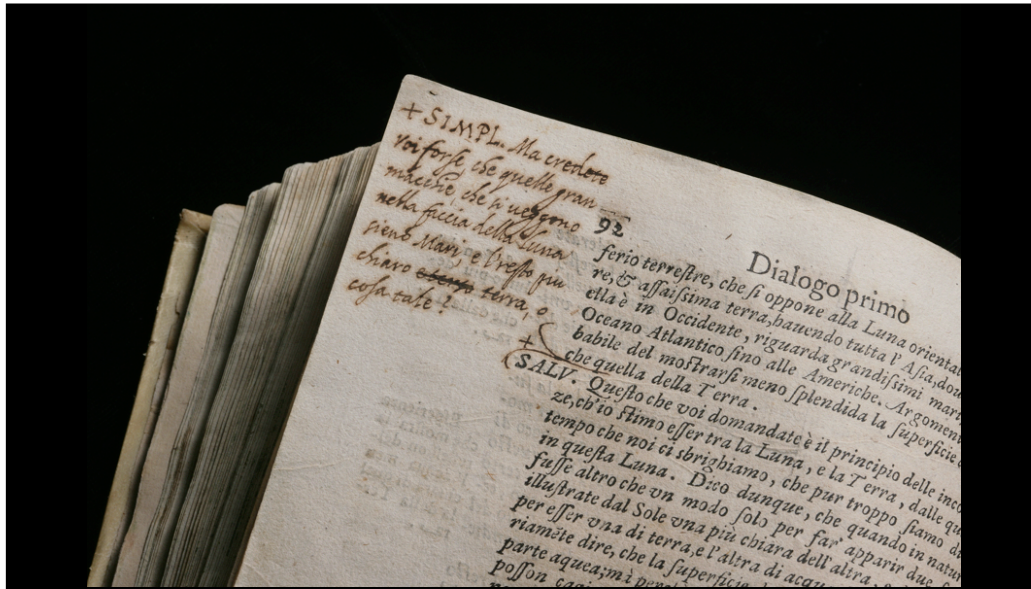 + SIMPL. Ma credete
voi forse, che quelle gran
macchie, che si veggono
nella faccia della Luna
sieno Mari, e l'resto più
chiaro terra, o
cosa tale?
92
Dialogo primo
ferio terreſtre, che ſi oppone alla Luna oriental
re, & aſſaiſſima terra, hauendo tutta l'Aſia, dou
ella è in Occidente, riguarda grandiſſimi mari
Oceano Atlantico fino alle Americhe. Argomen
babile del moſtrarſi meno ſplendida la ſuperficie
che quella della Terra.
+
SALV. Queſto che voi domandate è il principio delle inco
ze, ch'io ſtimo eſſer tra la Luna, e la Terra, dalle qu
tempo che noi ci sbrighiamo, che pur troppo ſiamo di
in queſta Luna. Dico dunque, che quando in natur
fuſſe altro che vn modo ſolo per far apparir due
illuſtrate dal Sole vna più chiara dell'altra,
per eſſer vna di terra, e l'altra di acqu
riamẽte dire, che la ſuperficie
parte aquea; mà per
poſſon